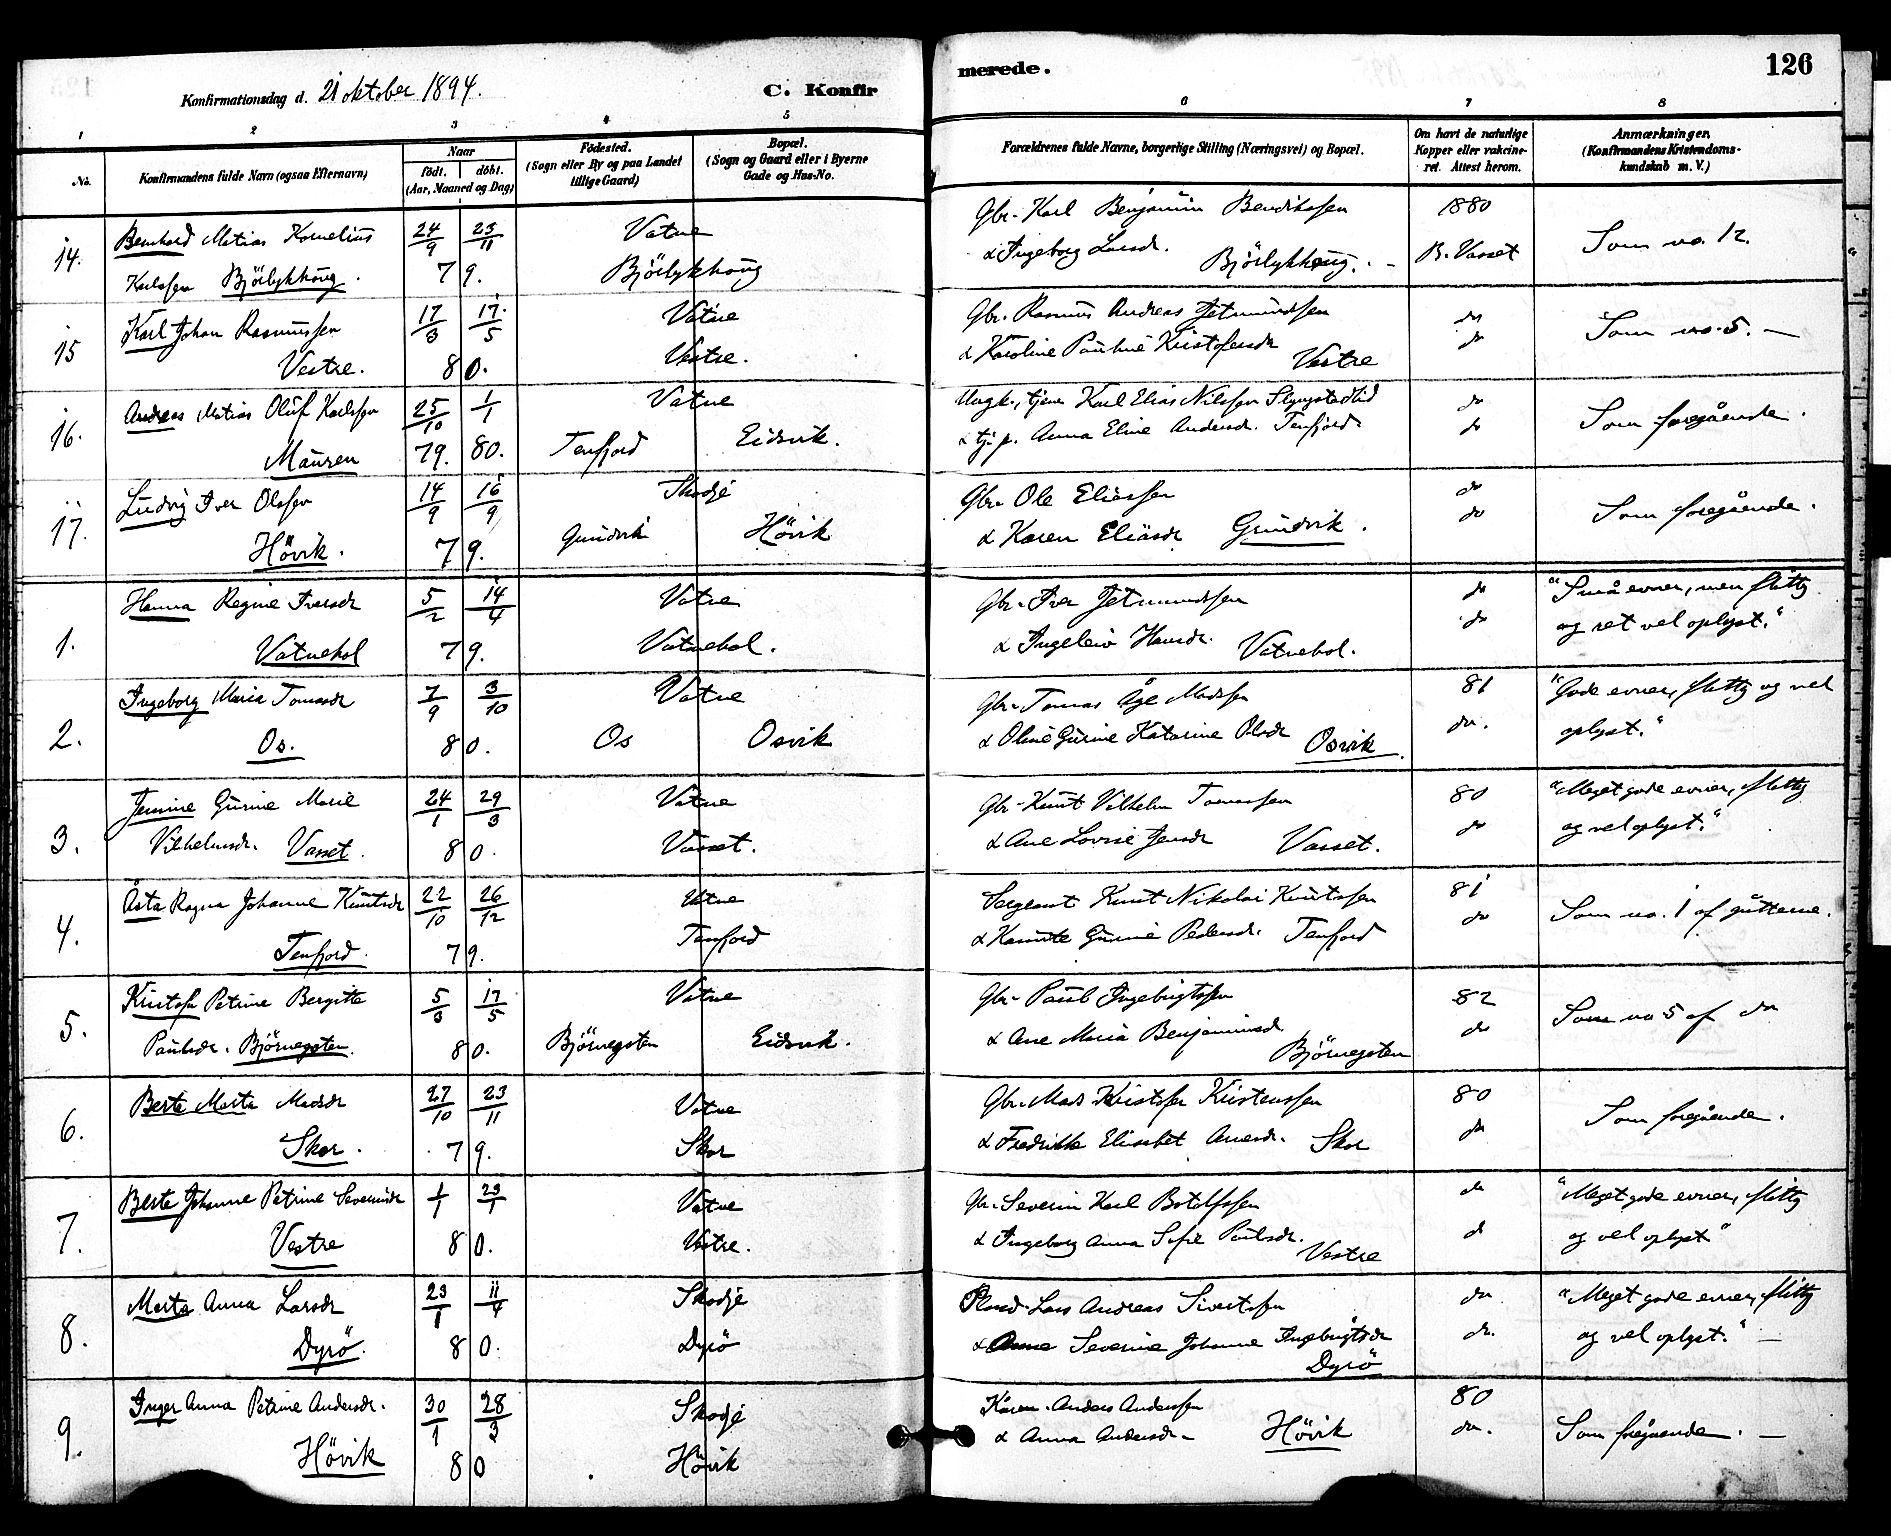 Konfirmationsdag d. 21 oktober 1894.
C. Konfir
merede.
126
1 2 3 4 5 6 7 8
No.
Konfirmandens fulde Navn (ogsaa Efternavn)
Naar
født. døbt.
(Aar, Maaned og Dag)
Fødested.
(Sogn eller By og paa Landet
tillige Gaard)
Bopæl.
(Sogn og Gaard eller i Byerne
Gade og Hus-No.
Forældrenes fulde Navne, borgerlige Stilling (Næringsvei) og Bopæl.
Om havt de naturlige
Kopper eller vakcine-
ret. Attest herom.
Anmærkninger.
(Konfirmandens Kristendoms-
kundskab m. V.)
14. Bernhard Matias Kornelius 24/9 23/11 Vatne Gbr. Karl Benjamin Bendiksen 1880
Karlsen Björlykhaug. 79. Björlykhaug & Ingeborg Larsdr. Björlykhaug. - B. Vasset Som no. 12.
15 Karl Johan Rasmussen 17/3 17/5 Vatne Gbr. Rasmus Andreas Jetmundsen do
Vestre. 80. Vestre. & Karoline Pauline Kristofersdr Vestre do Som no. 5. -
16. Andreas Matias Oluf Karlsen 25/10 1/1 Vatne Ungk., tjener Karl Elias Nilssen Slyngstadlid do
Mauren 79. 80. Tenfjord Eidsvik. & tj. p. Anna Eline Andersdr. Tenfjord do Som foregående.
17. Ludvig Iver Olssen 14/9 16/9 Skodje Gbr. Ole Eliassen do
Hövik. 79. Grindvik Hövik & Karen Eliasdr Grindvik. do Som foregående.
1. Hanna Regine Iversdr 5/2 14/4 Vatne Gbr. Iver Jetmundsen do "Små evner, men flittig
Vatnehol 79. Vatnehol. & Ingeleiv Hansdr. Vatnehol. do og ret vel oplyst."
2. Ingeborg Maria Tomasdr 7/9 3/10 Vatne Gbr. Tomas Åge Madssen 81 "Gode evner, flittig og vel
Os. 80. Os Osvik & Oline Gurine Katarine Olsdr Osvik do. oplyst."
3. Jensine Gurine Marie 24/1 29/3 Vatne Gbr. Knut Vilhelm Tomassen 80 "Meget gode evner, flittig
Vilhelmsdr. Vasset. 80. Vasset. & Ane Lovise Jensdr Vasset. do og vel oplyst."
4. Åsta Ragna Johanne Knutsdr 22/10 26/12 Vatne Sergeant Knut Nikolai Knutssen 81
Tenfjord. 79. Tenfjord & Kanute Gurine Pedersdr. Tenfjord do Som no. 1 af gutterne.
5. Kristofa Petrine Bergitte 5/3 17/5 Vatne Gbr. Paul Ingebrigtssen 82
Paulsdr. Björnegsten. 80. Björnegsten Eidsvik. & Ane Maria Benjaminsdr Björnegsten do Som no 5 af do
6. Berte Marta Madsdr 27/10 23/11 Vatne Gbr. Mads Kristofer Kristenssen 80
Skor. 79. Skor & Fredrikke Elisabet Anesdr. Skor do Som foregående.
7. Berte Johanne Petrine Severinsdr 1/1 23/1 Vatne Gbr. Severin Karl Botolfssen do "Meget gode evner, flittig
Vestre 80. Vestre. & Ingeborg Anna Sofie Paulsdr. Vestre do og vel oplyst"
8. Marta Anna Larsdr 23/1 11/4 Skodje Lars Andreas Sivertssen do "Meget gode evner, flittig
Dyrö. 80. Dyrö & Anne Severine Johanne Ingebrigtsdr Dyrö do. og vel oplyst." -
9. Inger Anna Petrine Andersdr. 30/1 28/3 Skodje Anders Anderssen 80
Hövik 80 Hövik & Anna Andersdr. Hövik do. Som foregående. -